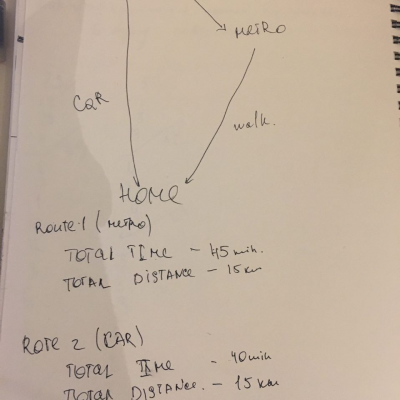 METRO
CAR
walk.
HOME
ROUTE 1 (METRO)
TOTAL TIME - 45 min.
TOTAL DISTANCE - 15 km
ROTE 2 (CAR)
TOTAL TIME - 40 min
TOTAL DISTANCE. - 15 km